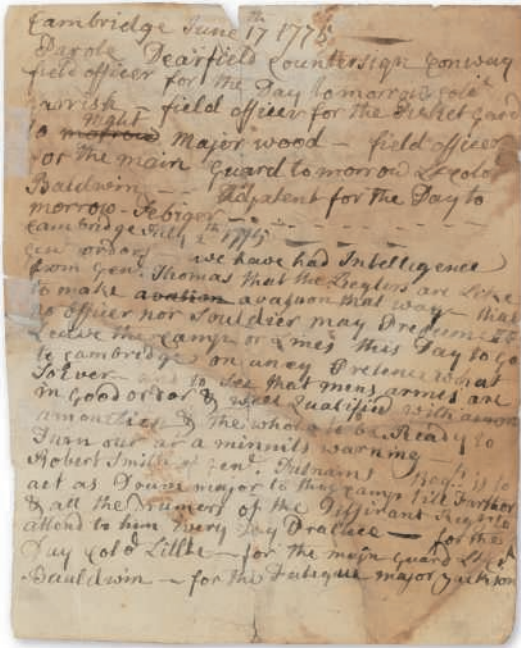 Cambridge June 17th 1775
Parole Dearfield Countersign Conway
field officer for the Day tomorrow Colo
Garrish - field officer for the Picket Gard
to night morrow Major wood - field officer
for the main guard to morrow Lt Colol
Baldwin - - Adjatent for the Day to
morrow - Febiger
Cambridge July 2th 1775
Genl orders we have had Intelligence
from Genl. Thomas that the Reglers are Like
to make avation avation that way - that
no officer nor Souldier may Presume to
Leave the Camp or Lines this Day to go
to Cambridge on aney Pretence what
Soever - and to See that mens armes are
in Good order & well Qualified with amon
amonetien & the whole to be Ready to
Turn out at a minnits warning -
Robert Smith of Genl. Putnams Regt. is to
act as Drum major to this Camp till Farther
& all the Drumers of the Diffirant Regts to
attend to him Every Day Practice - for the
Day Colo Little - for the main guard Lt Col
Bauldwin - for the Fatigue major Jackson